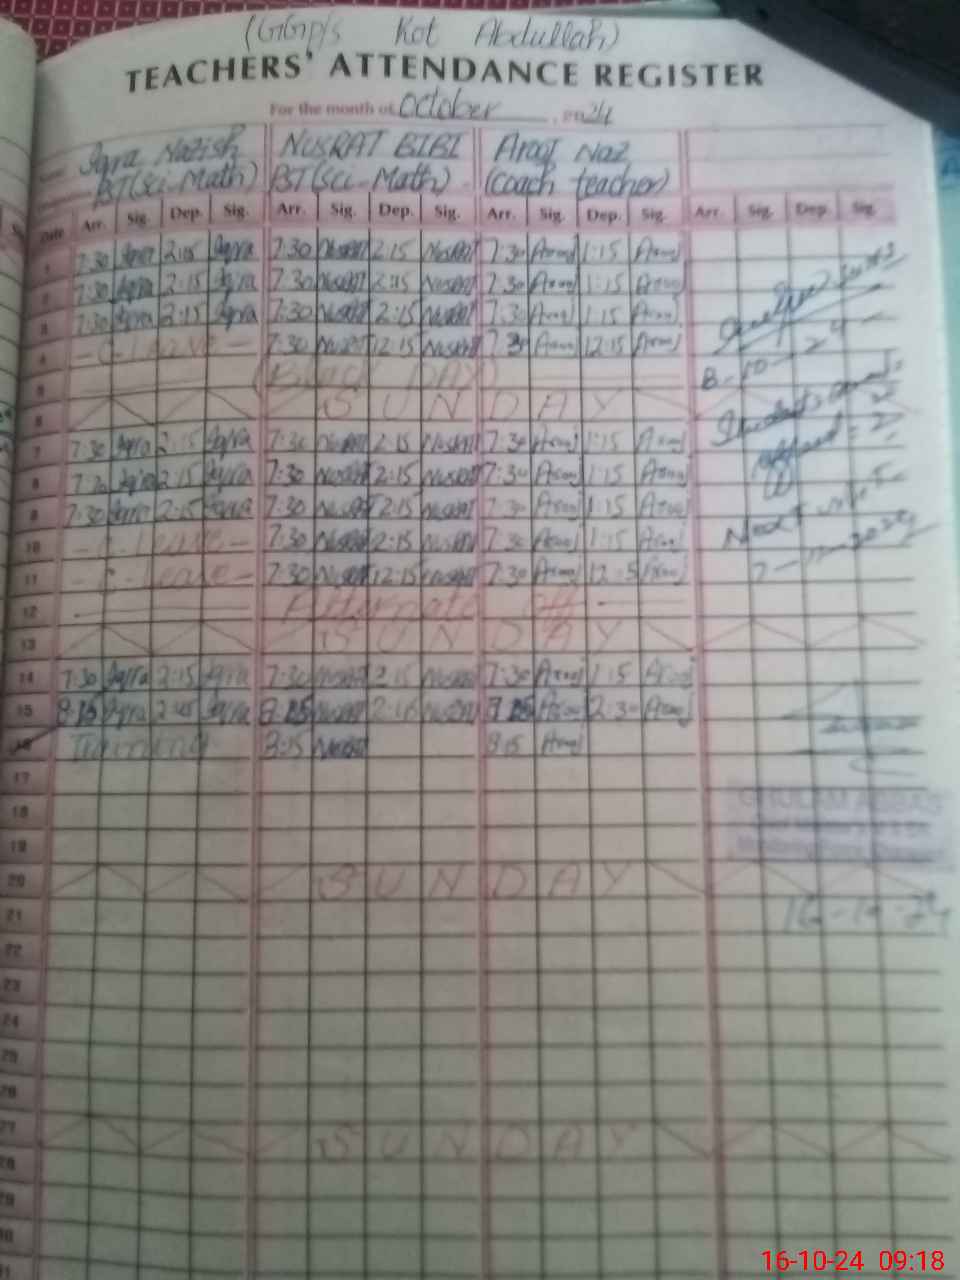 (GGp/s Kot Abdullah)
TEACHERS' ATTENDANCE REGISTER
For the month of October, 2024
Iqra Nazish NUSRAT BIBI Arooj Naz
PST(Sci-Math) PST(Sci-Math) (coach teacher)
Date Arr. Sig. Dep. Sig. Arr. Sig. Dep. Sig. Arr. Sig. Dep. Sig. Arr. Sig. Dep. Sig.
1 7:30 Iqra 2:15 Iqra 7:30 Nusrat 2:15 Nusrat 7:30 Arooj 1:15 Arooj
2 7:30 Iqra 2:15 Iqra 7:30 Nusrat 2:15 Nusrat 7:30 Arooj 1:15 Arooj
3 7:30 Iqra 2:15 Iqra 7:30 Nusrat 2:15 Nusrat 7:30 Arooj 1:15 Arooj
4 - C-Leave - 7:30 Nusrat 12:15 Nusrat 7:30 Arooj 12:15 Arooj
5 (Black DAY)
8-10-24
6 SUNDAY
7 7:30 Iqra 2:15 Iqra 7:30 Nusrat 2:15 Nusrat 7:30 Arooj 1:15 Arooj
8 7:30 Iqra 2:15 Iqra 7:30 Nusrat 2:15 Nusrat 7:30 Arooj 1:15 Arooj
9 7:30 Iqra 2:15 Iqra 7:30 Nusrat 2:15 Nusrat 7:30 Arooj 1:15 Arooj
Next visit
10 - C-Leave - 7:30 Nusrat 2:15 Nusrat 7:30 Arooj 1:15 Arooj
11 - C-Leave - 7:30 Nusrat 12:15 Nusrat 7:30 Arooj 12:15 Arooj
12 Alternate off
13 SUNDAY
14 7:30 Iqra 2:15 Iqra 7:30 Nusrat 2:15 Nusrat 7:30 Arooj 1:15 Arooj
15 8:15 Iqra 2:45 Iqra 8:15 Nusrat 2:45 Nusrat 8:15 Arooj 2:30 Arooj
16 Training 8:15 Nusrat 8:15 Arooj
17
18
GHULAM ABBAS
19
20 SUNDAY
21
16-10-24
22
23
24
25
26
27 SUNDAY
28
29
30
31
16-10-24 09:18